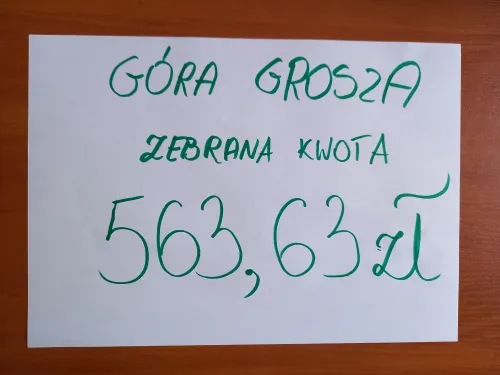 GÓRA GROSZA
ZEBRANA KWOTA
563,63 zł